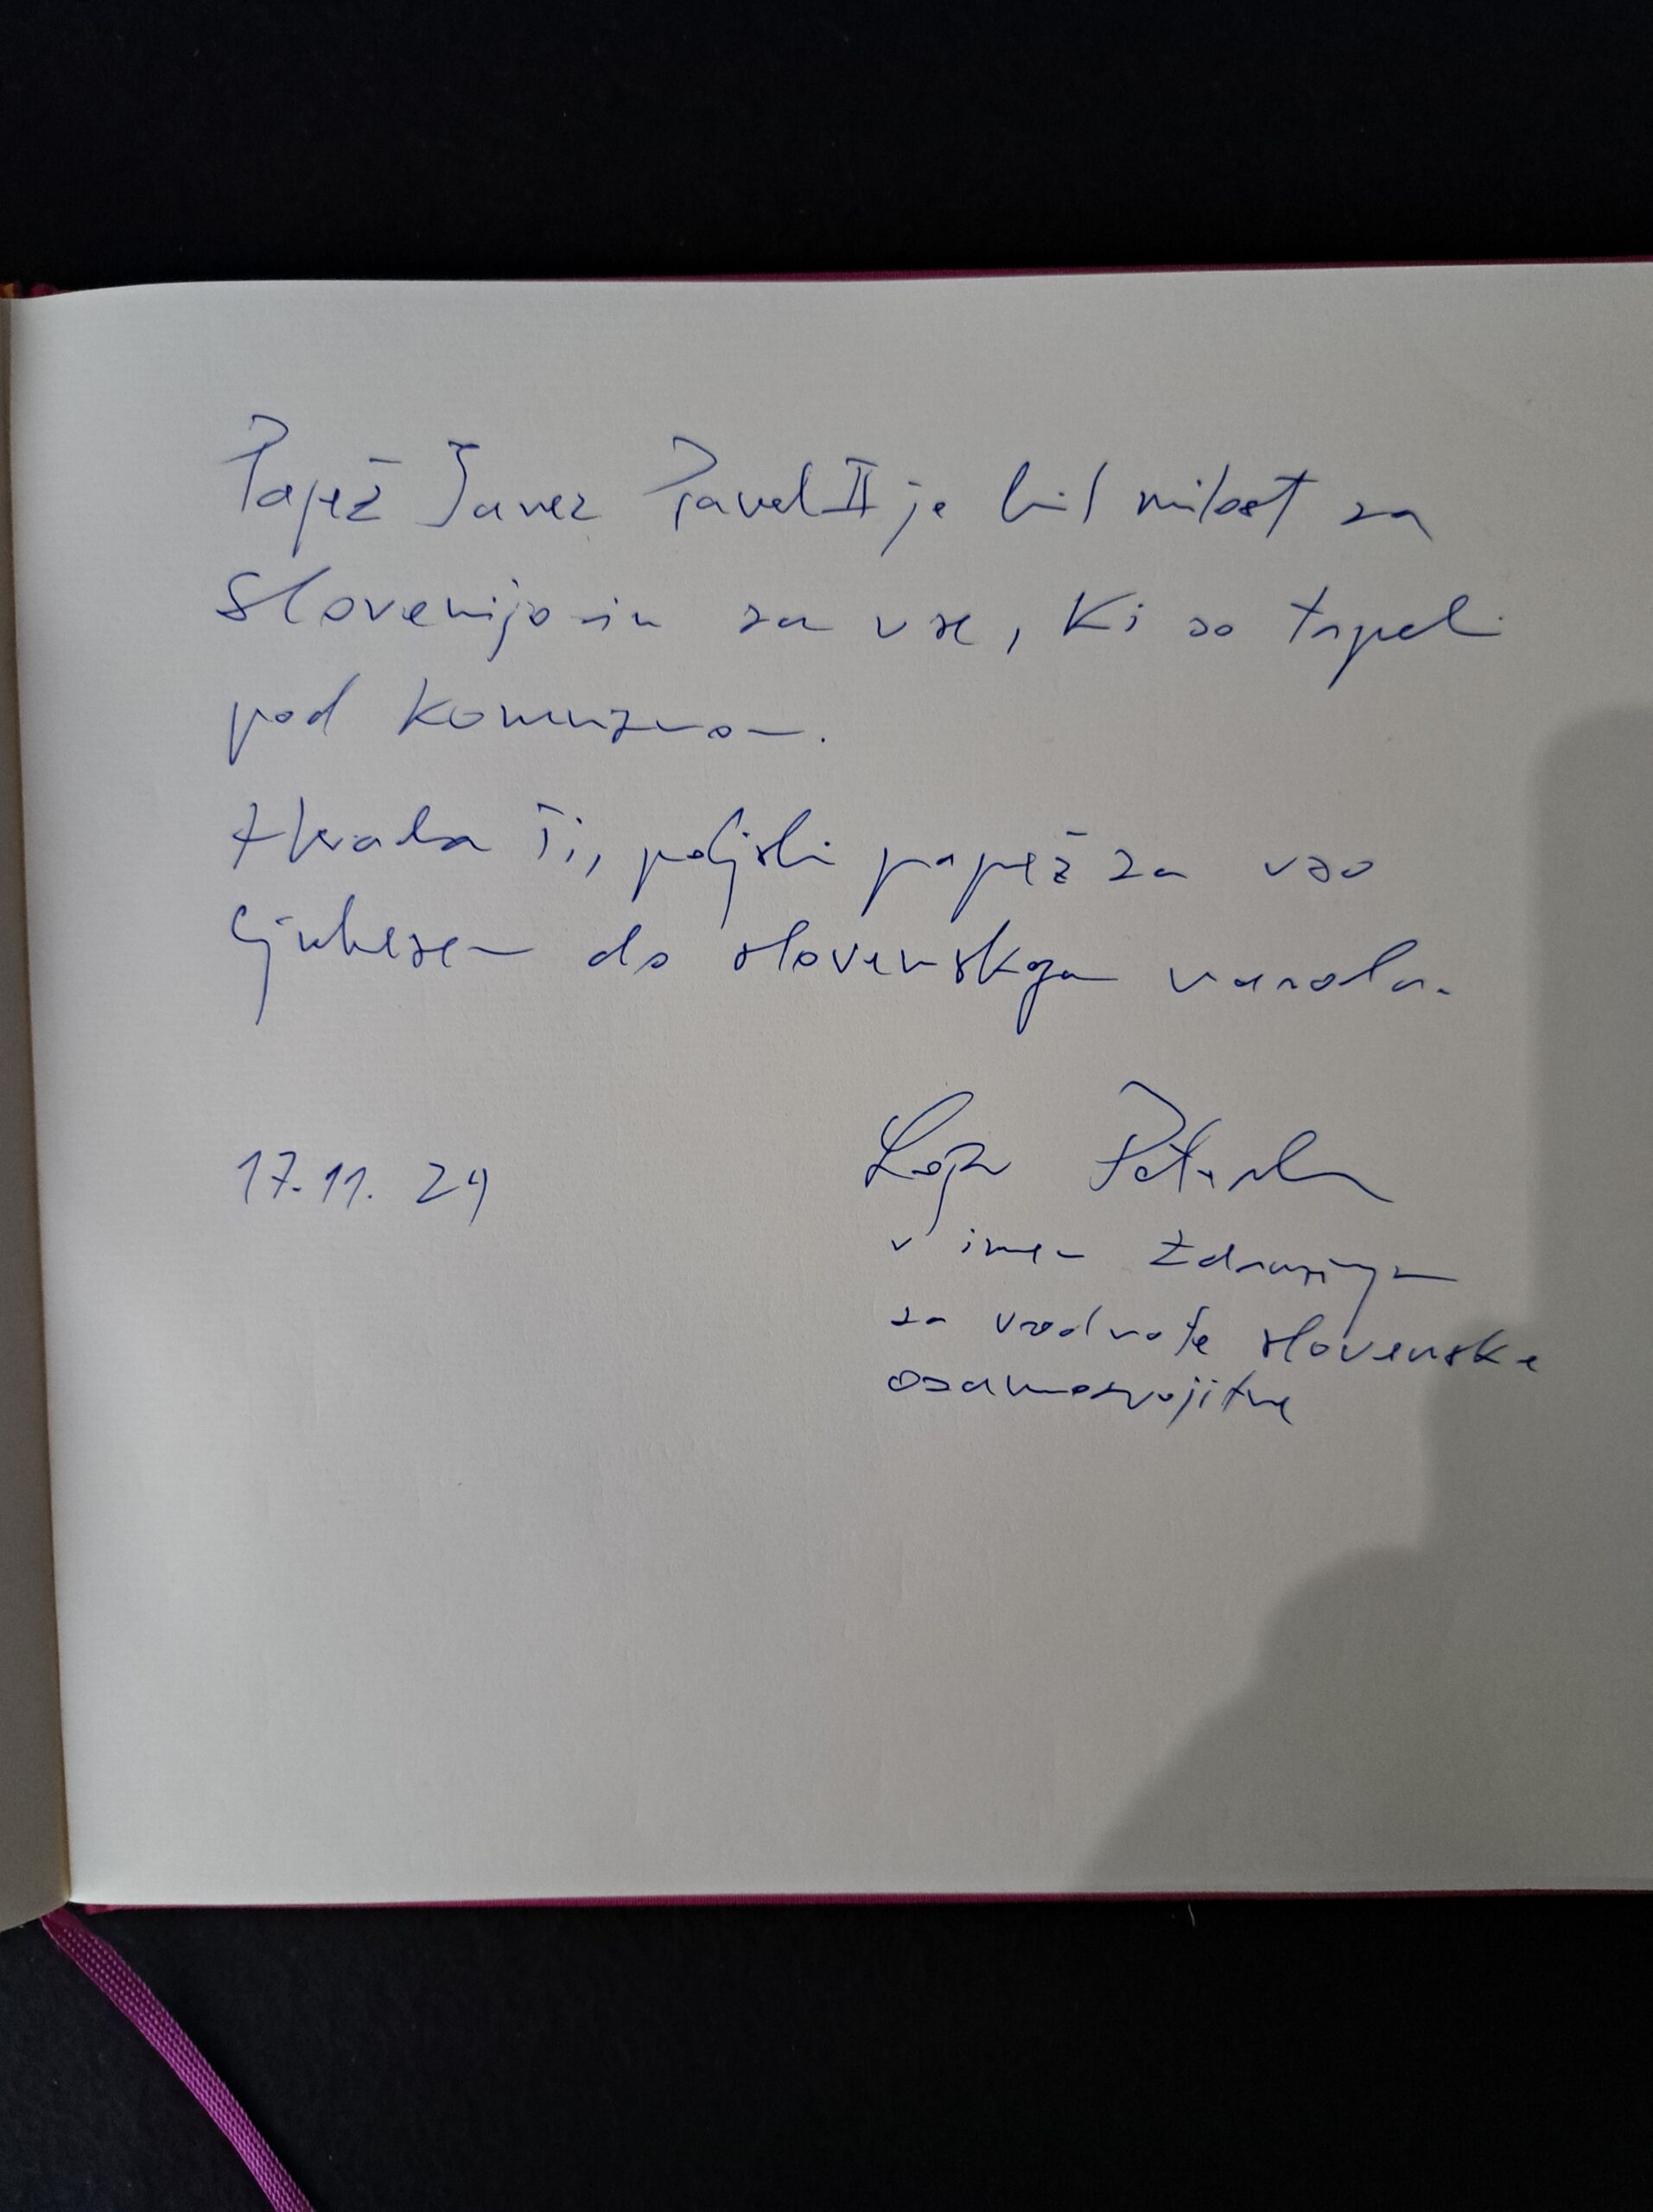 Papež Janez Pavel II je bil milost za
Slovenijo in za vse, ki so trpeli
pod komunizmom.
Hvala Ti, poljski papež za vso
ljubezen do slovenskega naroda.
17.11.24
Lojze Peterle
v imenu Združenja
za vrednote slovenske
osamosvojitve